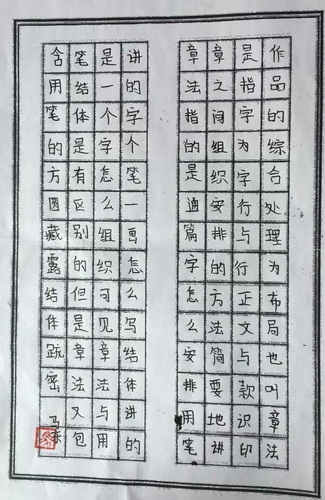 作品的综合处理为布局也叫章法
是指字为字行与行正文与款识印
章之间组织安排的方法简要地讲
章法指的是通篇字怎么安排用笔
讲的字个笔一画怎么写结体讲的
是一个字怎么组织可见章法与用
笔结体是有区别的但是章法又包
含用笔的方圆藏露结体疏密